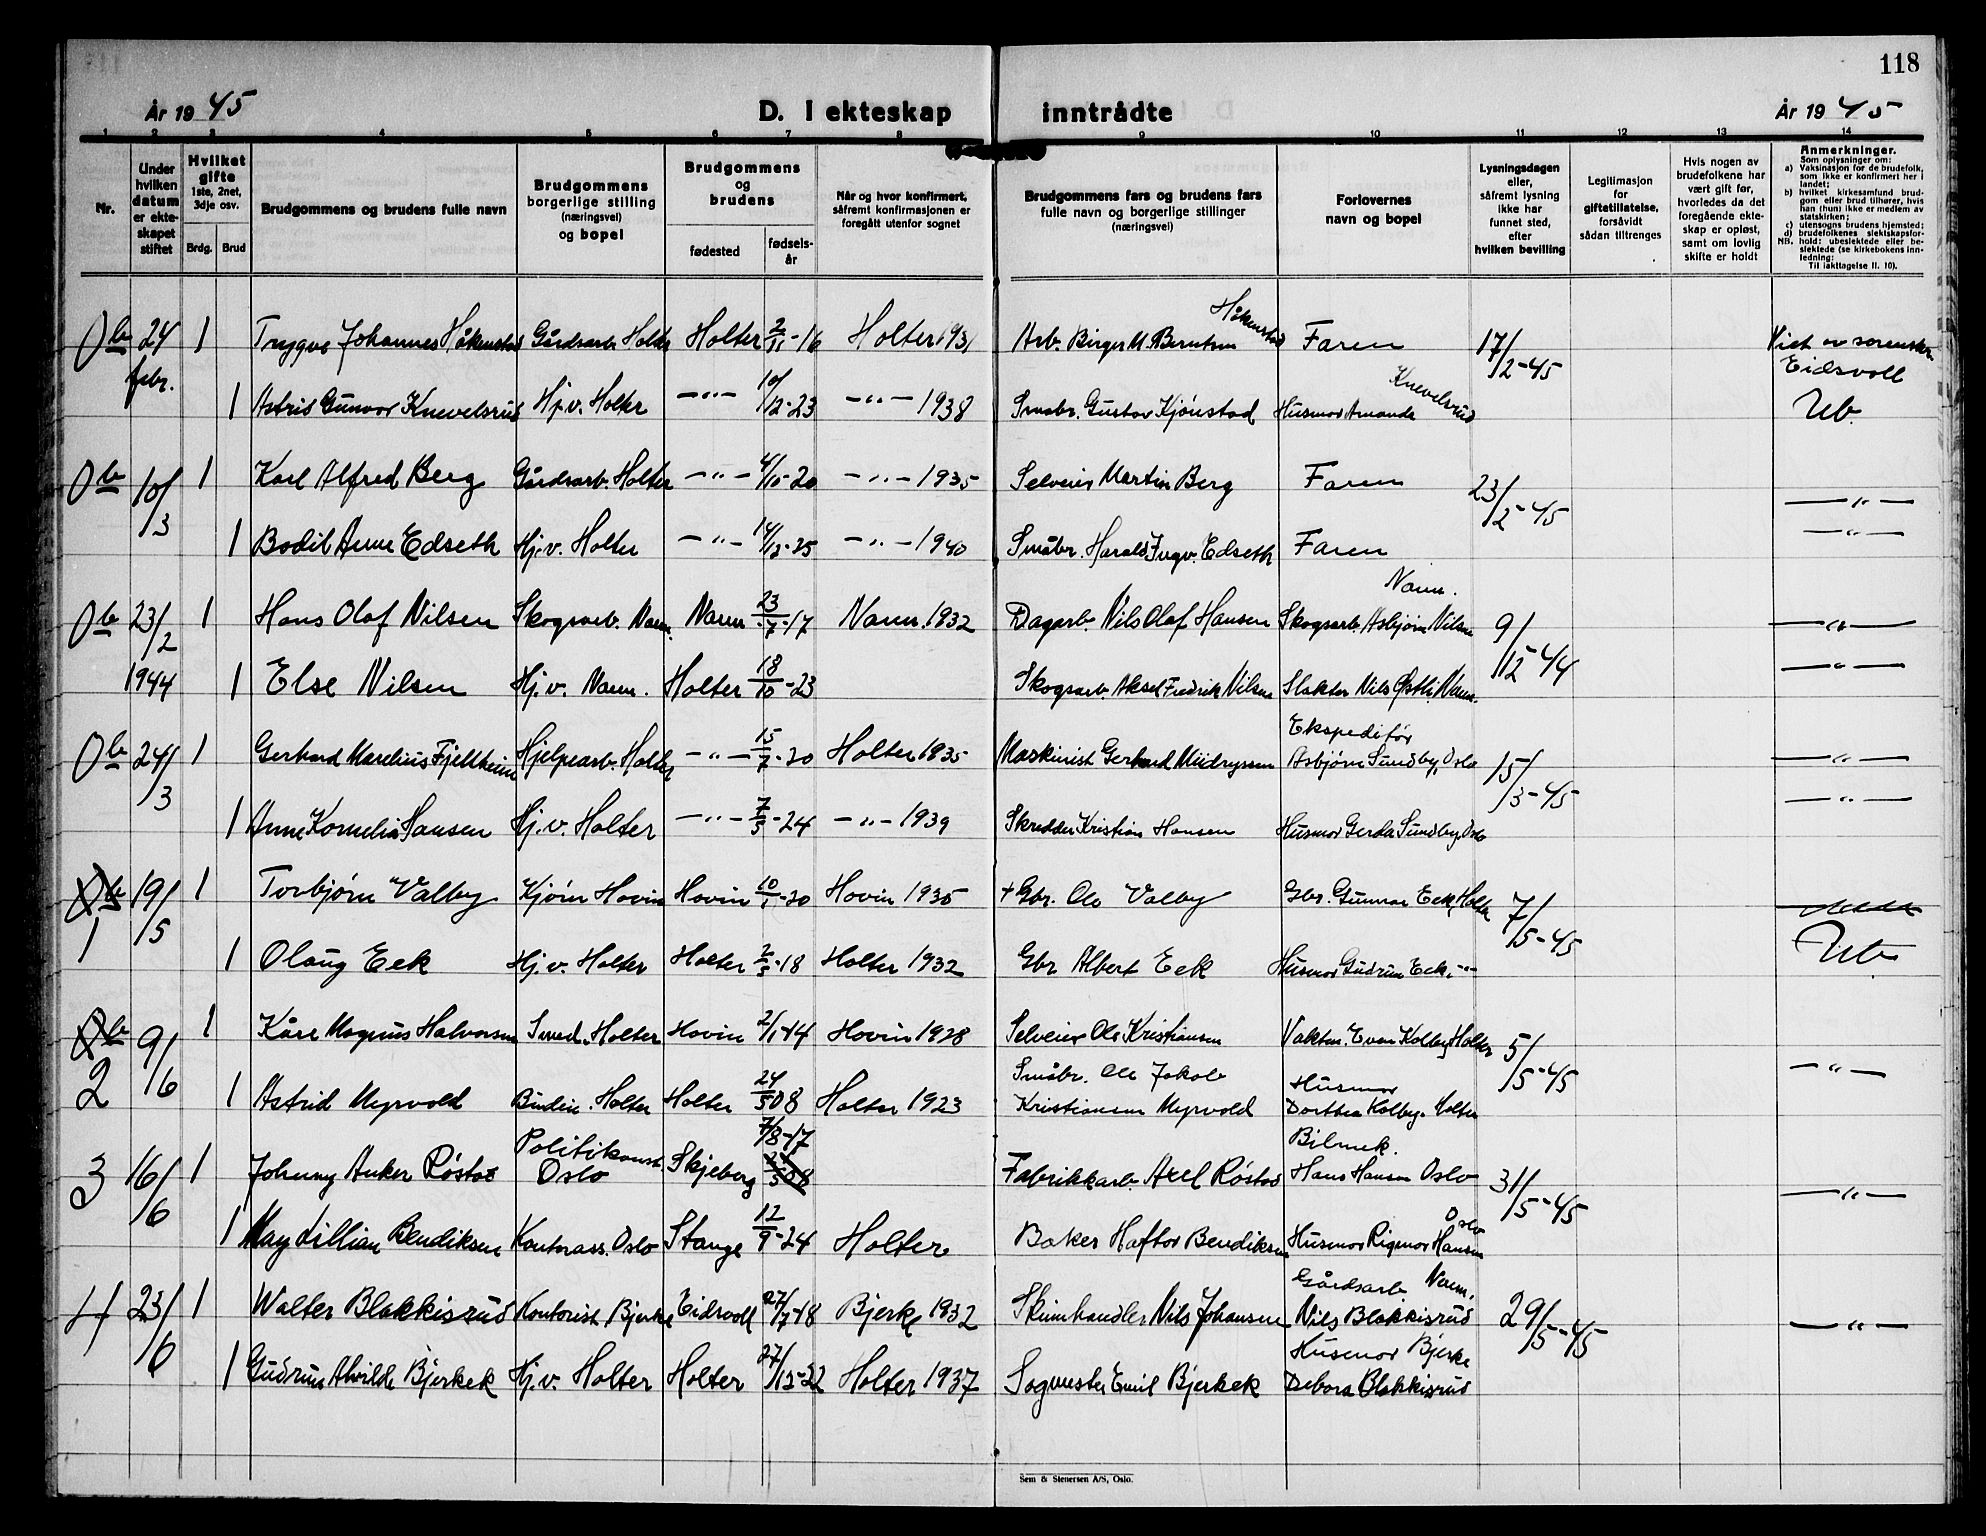 118
År 1945 D. I ekteskap inntrådte År 1945
1 2 3 4 5 6 7 8 9 10 11 12 13 14
Nr.
Under hvilken datum er ekteskapet stiftet
Hvilket gifte 1ste, 2net, 3dje osv.
Brdg. Brud
Brudgommens og brudens fulle navn
Brudgommens borgerlige stilling (næringsvei) og bopel
Brudgommens og brudens
fødested fødselsår
Når og hvor konfirmert, såfremt konfirmasjonen er foregått utenfor sognet
Brudgommens fars og brudens fars fulle navn og borgerlige stillinger (næringsvei)
Forlovernes navn og bopel
Lysningsdagen eller, såfremt lysning ikke har funnet sted, efter hvilken bevilling
Legitimasjon for giftetillatelse, forsåvidt sådan tiltrenges
Hvis nogen av brudefolkene har vært gift før, hvorledes da det foregående ekteskap er opløst, samt om lovlig skifte er holdt
Anmerkninger.
Som oplysninger om:
a) Vaksinasjon for de brudefolk, som ikke er konfirmert her i landet;
b) hvilket kirkesamfund brudgom eller brud tilhører, hvis han (hun) ikke er medlem av statskirken;
c) utensogns brudens hjemsted;
d) brudefolkenes slektskapsforhold: ubeslektede eller beslektede (se kirkebokens innledning:
NB. Til iakttagelse II. 10).
Ob 24 febr. 1 Trygve Johannes Håkenstad Gårdsarb. Holter Holter 2/11-16 Holter 1931 Arb. Birger M. Berntsen Håkenstad Faren 17/2-45 Viet av sorenskr. Eidsvoll
1 Astrid Gunvor Knevelsrud Hj.v. Holter —"— 10/2-23 —"— 1938 Småbr. Gustav Kjønstad Husmor Amanda Knevelsrud Ub.
Ob 10/3 1 Karl Alfred Berg Gårdsarb. Holter —"— 4/10-20 —"— 1935 Selveier Martin Berg Faren 23/2-45 —"—
1 Bodil Anne Edseth Hj.v. Holter —"— 14/12-25 —"— 1940 Småbr. Harald Ingv. Edseth Faren —"—
Ob 23/2 1944 1 Hans Olaf Nilsen Skogsarb. Nann. Nann. 23/7-17 Nann. 1932 Dagarb. Nils Olaf Hansen Skogsarb. Asbjørn Nilsen Nann. 9/12-44 —"—
1 Else Nilsen Hj.v. Nann. Holter 18/10-23 Skogsarb. Aksel Fredrik Nilsen Slakter Nils Østli, Nann. —"—
Ob 24/3 1 Gerhard Marelius Fjellheim Hjelpearb. Holter —"— 15/7-20 Holter 1935 Maskinist Gerhard Ekspeditør Asbjørn Sundby, Oslo 15/3-45 —"—
1 Anne Kornelia Hansen Hj.v. Holter —"— 7/5-24 —"— 1939 Skredder Kristian Hansen Husmor Gerda Sundby, Oslo —"—
1 19/5 1 Torbjørn Valby Kjørn Hovin Hovin 10/1-20 Hovin 1935 + Gbr. Ole Valby Gbr. Gunnar Eek, Holter 7/5-45
1 Olaug Eek Hj.v. Holter Holter 2/5-18 Holter 1932 Gbr Albert Eek Husmor Gudrun Eek, —"— Ub.
2 9/6 1 Kåre Magnus Halvorsen Smed. Holter Hovin 2/1-14 Hovin 1928 Selveier Ole Kristiansen Vaktm. Even Kolby Holter 5/5-45 —"—
1 Astrid Myrvold Holter Holter 24/5 08 Holter 1923 Småbr. Ole Jakob Kristiansen Myrvold Husmor Dorthea Kolby. Holter
3 16/6 1 Johnny Anker Røstad Politikonst. Oslo Skjeberg 7/8-17 Fabrikkarb. Axel Røstad Bilmek. Hans Hansen Oslo 31/5-45 —"—
1 May Lillian Bendiksen Kontorass. Oslo Stange 12/9-24 Holter Baker Haftor Bendiksen Husmor Rigmor Hansen Oslo
4 23/6 1 Walter Blakkisrud Kontorist Bjerke Eidsvoll 27/7-18 Bjerke 1932 Skinnhandler Nils Johansen Gårdsarb. Nann. Nils Blakkisrud 29/5-45 —"—
1 Gudrun Alvilde Bjerkek Hj.v. Holter Holter 27/12-22 Holter 1937 Sagmester Emil Bjerkek Husmor Bjerke Debora Blakkisrud
Sem & Stenersen A/S, Oslo.